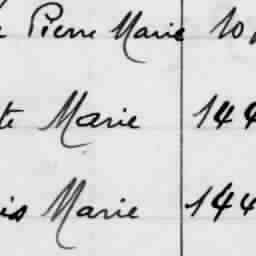 Pierre Marie 10
te Marie 144
is Marie 144